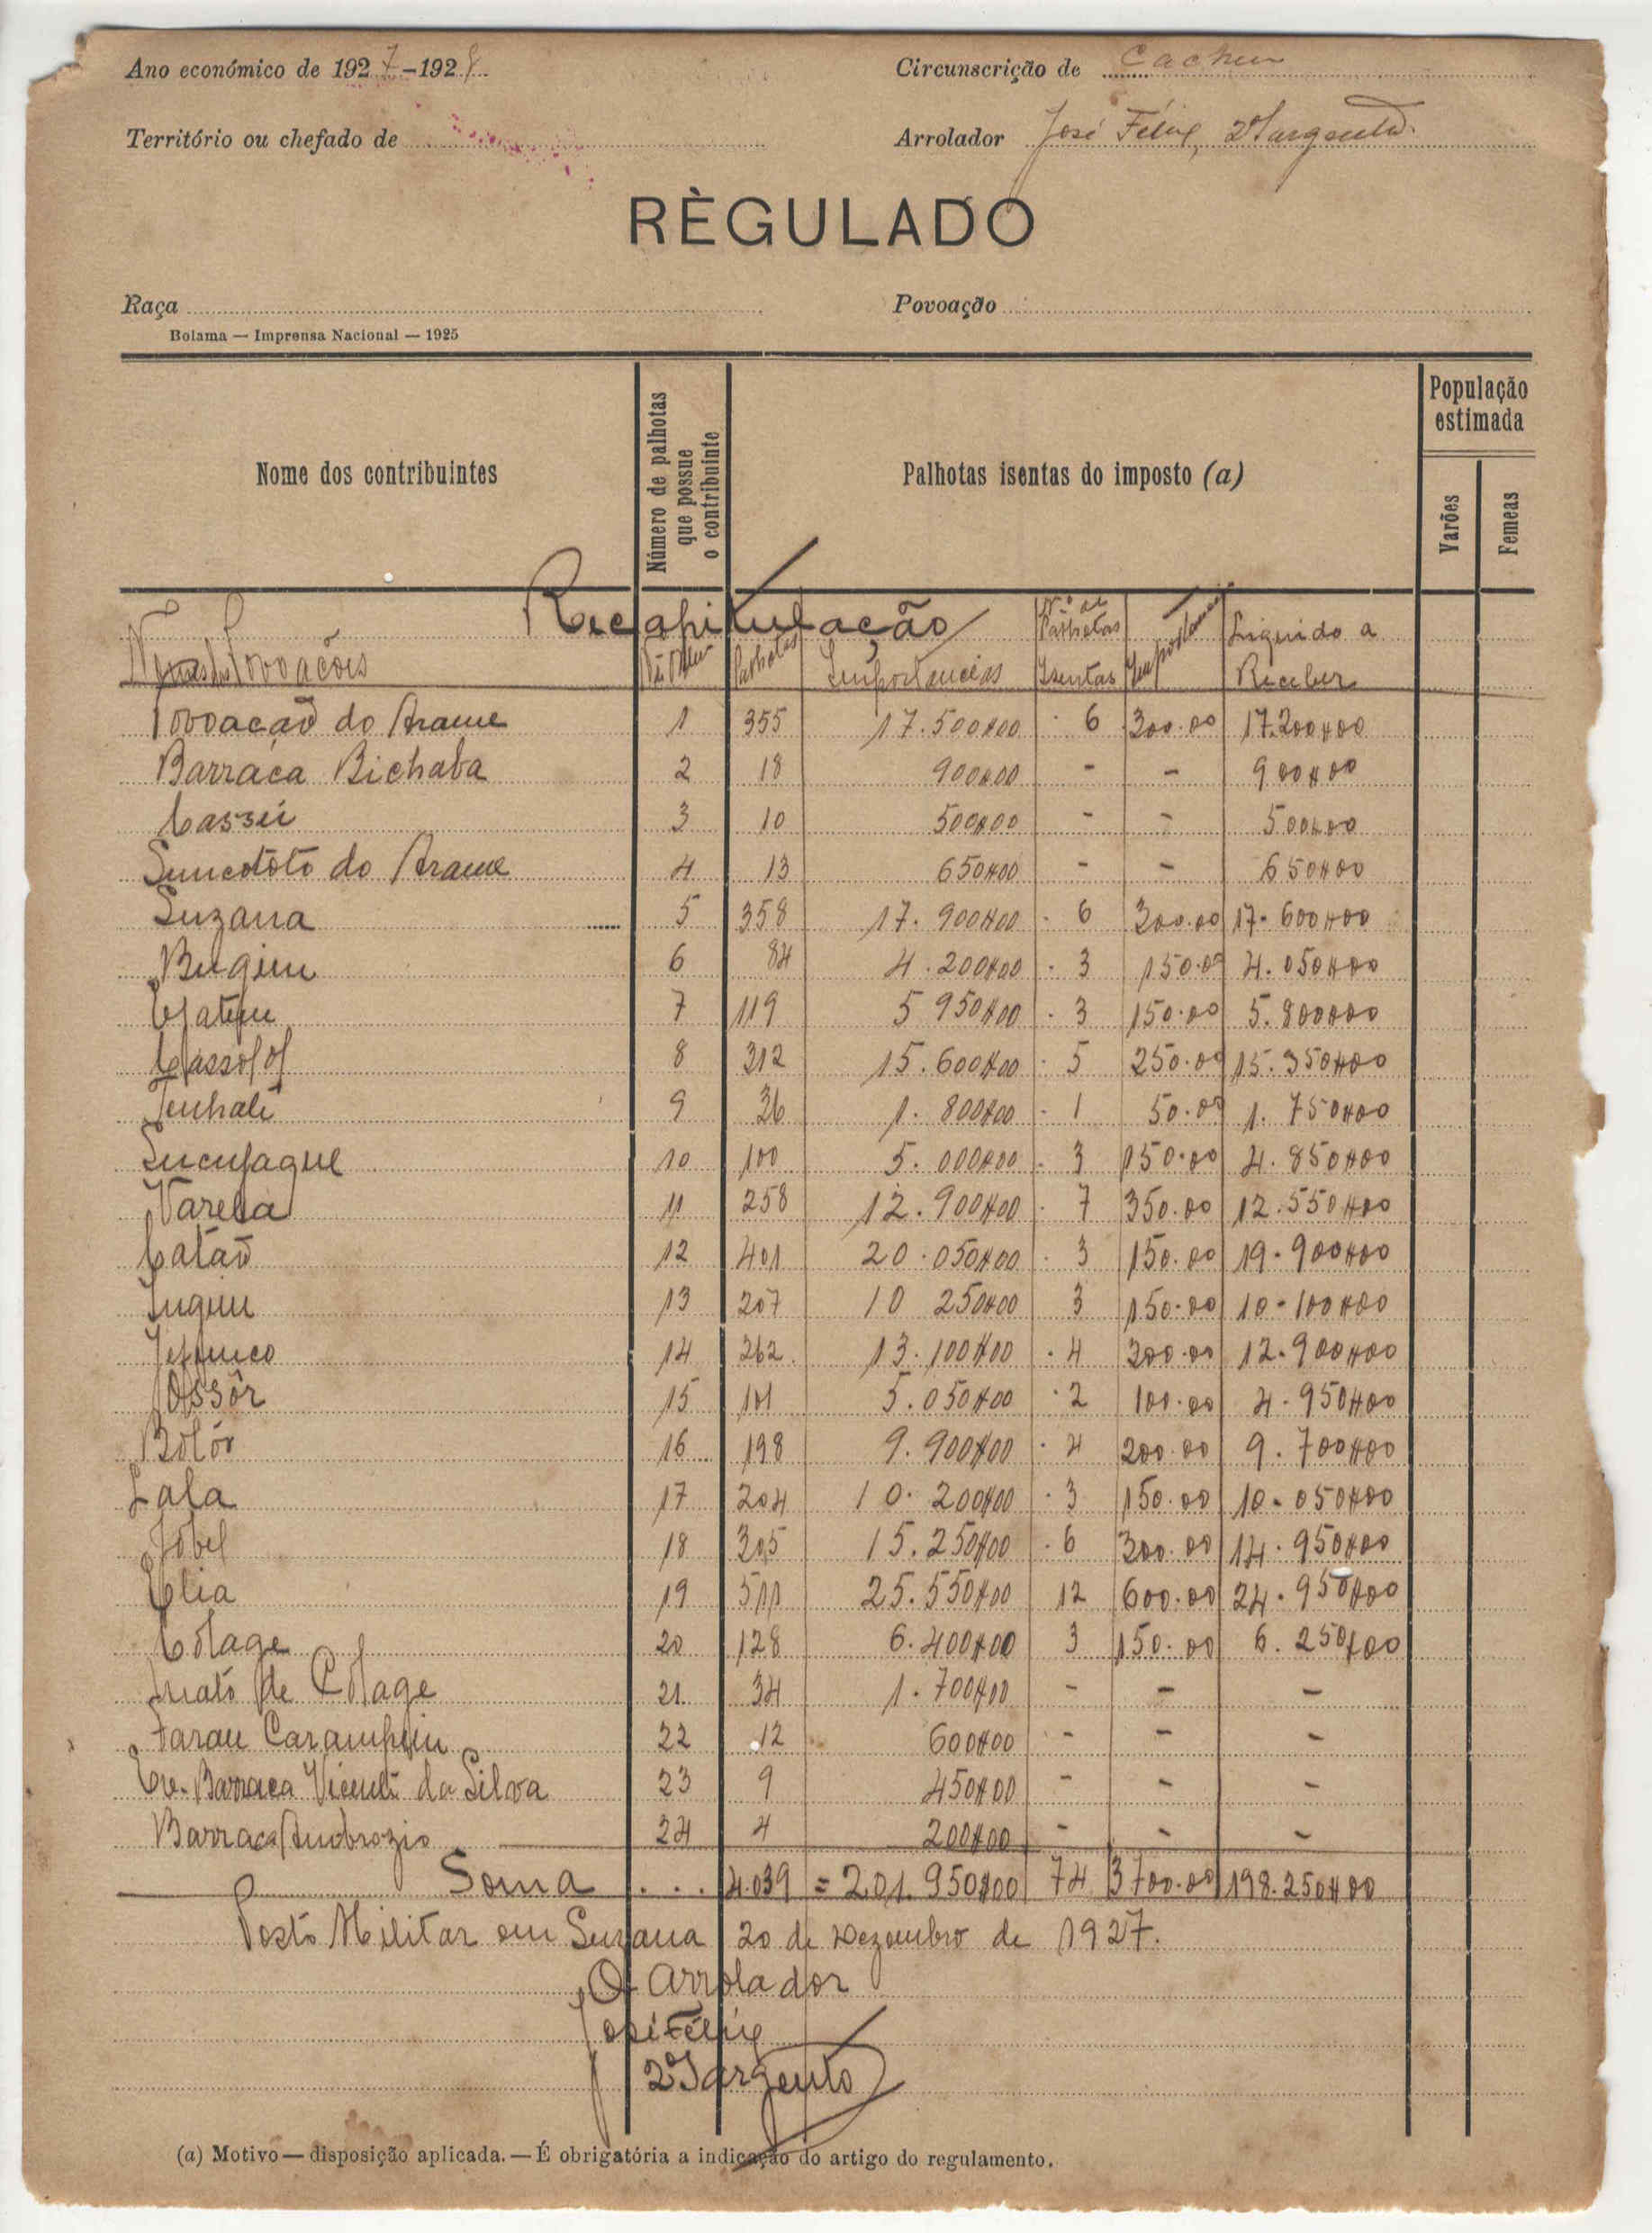 Ano económico de 1927-1928 Circunscrição de Cacheu
Território ou chefado de Arrolador José Félix, 2º Sargento
RÈGULADO
Raça Povoação
Bolama — Imprensa Nacional — 1925
Nome dos contribuintes Número de palhotas que possue o contribuinte Palhotas isentas do imposto (a) População estimada
Varões Femeas
Recapitulação
Povoações Nº Ordem Palhotas Importancias Nº de Palhotas Isentas Importancias Liquido a Receber
Povoação do Arame 1 355 17.500$00 6 300.00 17.200$00
Barraca Bichaba 2 18 900$00 - - 900$00
Cassú 3 10 500$00 - - 500$00
do Arame 4 13 650$00 - - 650$00
Suzana 5 358 17.900$00 6 300.00 17.600$00
Bugim 6 84 4.200$00 3 150.00 4.050$00
Ejatem 7 119 5 950$00 3 150.00 5.800$00
Cassolol 8 312 15.600$00 5 250.00 15.350$00
Tenhate 9 36 1.800$00 1 50.00 1.750$00
Sucujaque 10 100 5.000$00 3 150.00 4.850$00
Varela 11 258 12.900$00 7 350.00 12.550$00
Catão 12 401 20.050$00 3 150.00 19.900$00
Jugim 13 207 10 250$00 3 150.00 10.100$00
Jefunco 14 262 13.100$00 4 200.00 12.900$00
Ossôr 15 101 5.050$00 2 100.00 4.950$00
Bolór 16 198 9.900$00 4 200.00 9.700$00
Lala 17 204 10.200$00 3 150.00 10.050$00
Jobel 18 305 15.250$00 6 300.00 14.950$00
Elia 19 511 25.550$00 12 600.00 24.950$00
Colage 20 128 6.400$00 3 150.00 6.250$00
Mato de Colage 21 34 1.700$00 - - -
Farau 22 12 600$00 - - -
Barraca Vicente da Silva 23 9 450$00 - - -
Barraca Ambrozio 24 4 200$00 - - -
Soma ... 4.039 = 201.950$00 74 3700.00 198.250$00
Posto Militar em Suzana 20 de Dezembro de 1927.
O Arrolador
José Félix
2º Sargento
(a) Motivo — disposição aplicada. — É obrigatória a indicação do artigo do regulamento.